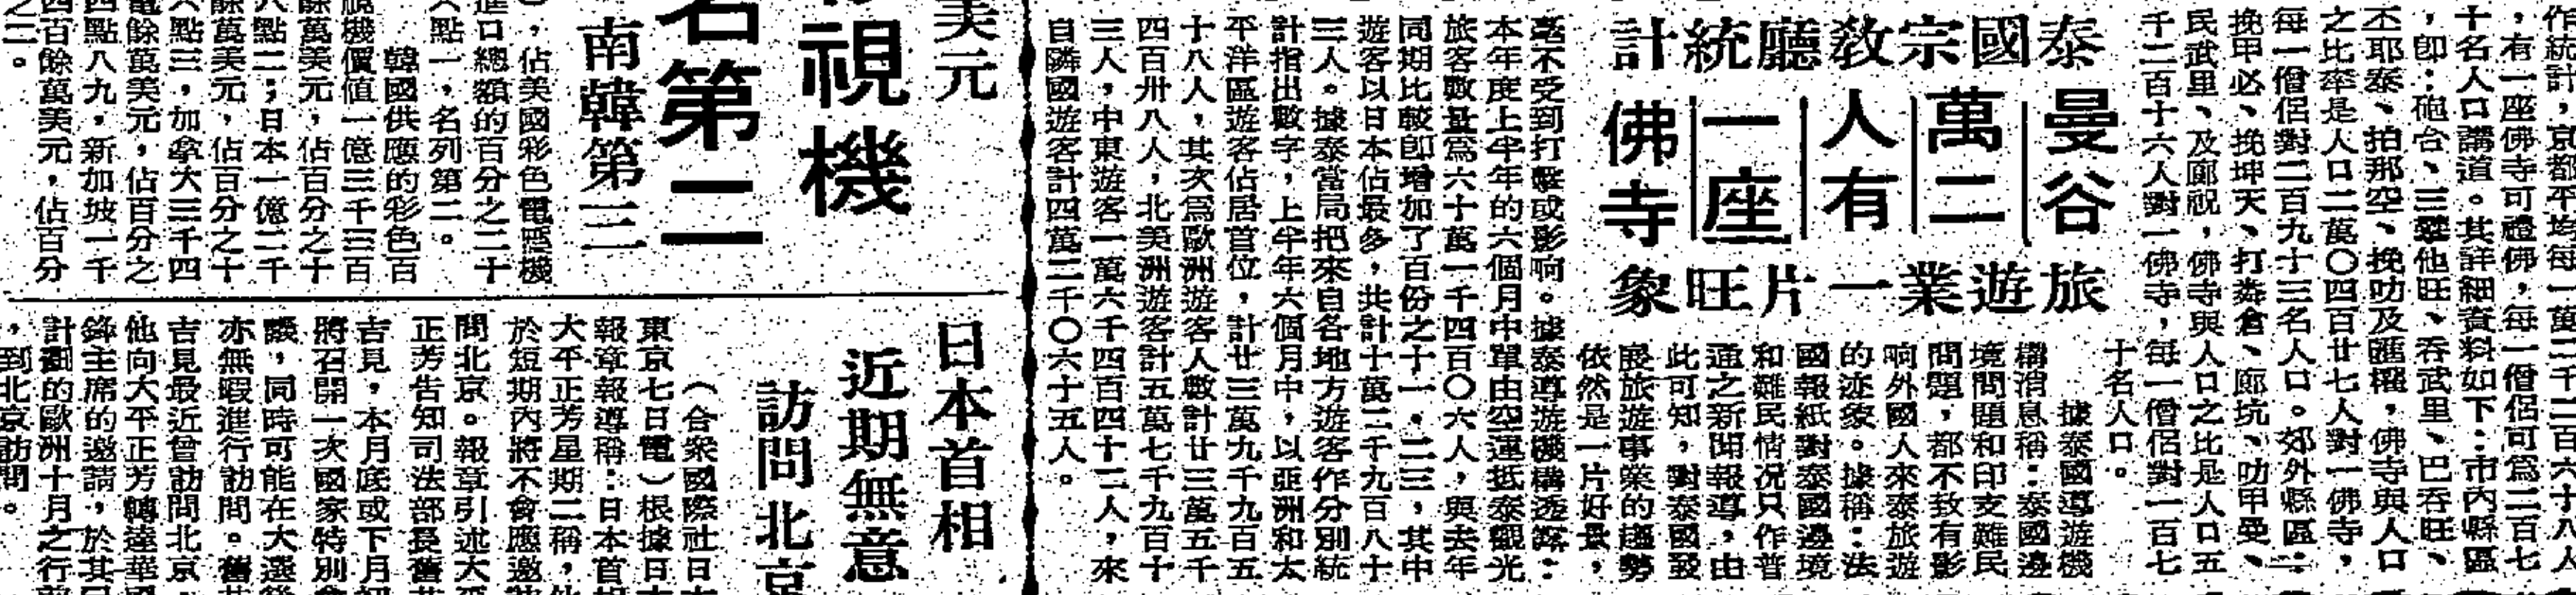 作統計，京都平均每一萬二千二百六十八人
，有一座佛寺可禮佛，每一僧侶可爲二百七
十名人口講道。其詳細資料如下：市內縣區
，卽：砲台、三聾他旺、吞武里、巴吞旺、
丕耶泰、拍那空、挽叻及匯權，佛寺與人口
之比率是人口二萬〇四百廿七人對一佛寺，
每一僧侶對二百九十三名人口。郊外縣區：
挽甲必、挽坤天、打鄰倉、廊坑、叻甲曼、
民武里、及廊祝，佛寺與人口之比是人口五
千二百十六人對一佛寺，每一僧侶對一百七
十名人口。
泰國宗教廳統計
曼谷
萬二
人有
一座
佛寺
旅遊業一片旺象
據泰國導遊機
構消息稱：泰國邊
境問題和印支難民
問題，都不致有影
响外國人來泰旅遊
的迹象。據稱：法
國報紙對泰國邊境
和難民情况只作普
通之新聞報導，由
此可知，對泰國發
展旅遊事業的趨勢
依然是一片好景，
毫不受到打擊或影响。據泰導遊機構透露：
本年度上半年的六個月中單由空運抵泰觀光
旅客數量爲六十萬一千四百〇六人，與去年
同期比較卽增加了百份之十一．二三，其中
遊客以日本佔最多，共計十萬二千九百八十
三人。據泰當局把來自各地方遊客作分別統
計指出數字，上半年六個月中，以亞洲和太
平洋區遊客佔居首位，計廿三萬九千九百五
十八人，其次爲歐洲遊客人數計廿三萬五千
四百卅八人，北美洲遊客計五萬七千九百十
三人，中東遊客一萬六千四百四十二人，來
自隣國遊客計四萬二千〇六十五人。
美元
視機
名第二
南韓第三
，佔美國彩色電視機
進口總額的百分之二十
六點一，名列第二。
韓國供應的彩色百
視機價值一億三千三百
餘萬美元，佔百分之十
八點二；日本一億二千
餘萬美元，佔百分之十
六點三，加拿大三千四
電餘萬美元，佔百分之
四點八九，新加坡一千
四百餘萬美元，佔百分
之二。
日本首相
近期無意
訪問北京
（合衆國際社日本
東京七日電）根據日本
報章報導稱：日本首相
大平正芳星期二稱，他
於短期內將不會應邀訪
問北京。報章引述大平
正芳告知司法部長舊井
吉見，本月底或下月初
將召開一次國家特別會
議，同時可能在大選後
亦無暇進行訪問。舊井
吉見最近曾訪問北京，
他向大平正芳轉達華國
鋒主席的邀請，於其已
計劃的歐洲十月之行前
，到北京訪問。